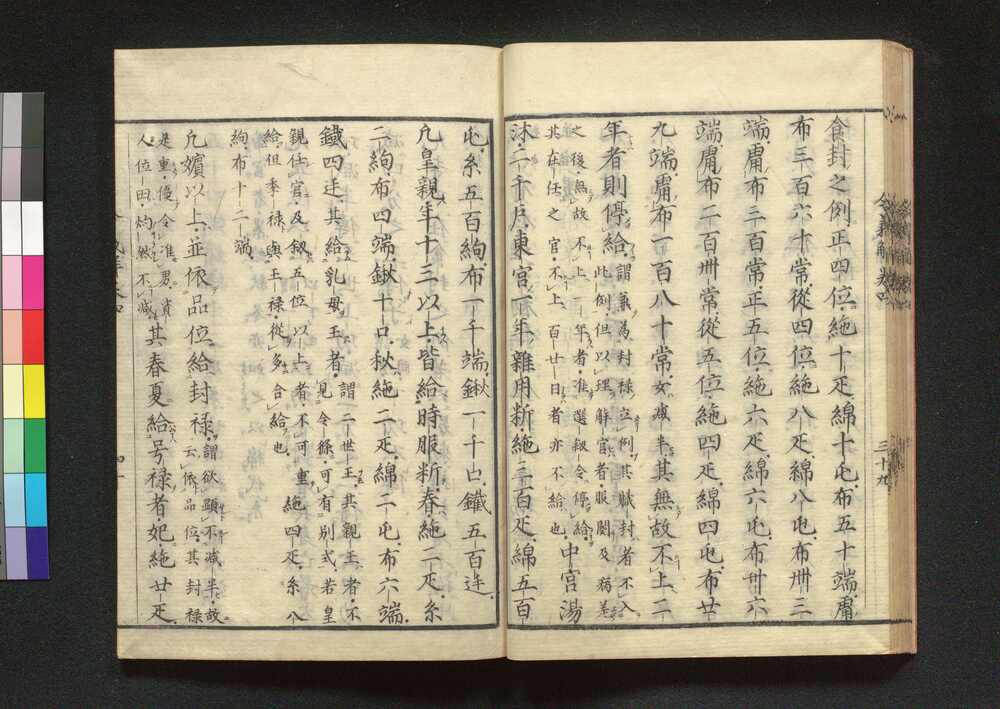 食封之例正四位絁十疋綿十屯布五十端庸
布三百六十常從四位絁八疋綿八屯布卌三
端庸布三百常正五位絁六疋綿六屯布卅六
端庸布二百卌常從五位絁四疋綿四屯布廿
九端庸布一百八十常女减半其無故不上二
年者則停給謂兼為封禄立例其職封者不入
此例但以理解官者服闋及病差
之後無故不上二年者准選叙令停給
其在任之官不上百廿日者亦不給也中宮湯
沐二千戸東宮一年雜用料絁三百疋綿五百
屯糸五百絇布一千端鍬一千口鐵五百廷
凢皇親年十三以上皆給時服料春絁二疋糸
二絇布四端鍬十口秋絁二疋綿二屯布六端
鐵四廷其給乳母王者謂二世王其親王者不
見令條可有別式若皇
親任官及叙五位以上者不可重
給但季禄與王禄從多合給也絁四疋糸八
絇布十二端
凢嬪以上並依品位給封禄謂欲顯不减半故
云依品位其封禄
是重優令准男資
人位田灼然不减其春夏給号禄者妃絁廿疋
令義解卷四
三十九